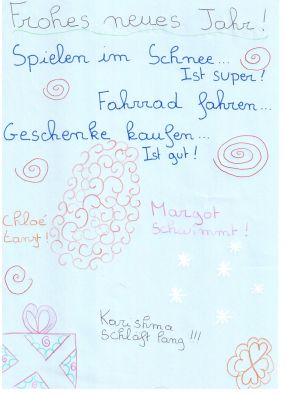 Frohes neues Jahr!
Spielen im Schnee...
Ist super!
Fahrrad fahren...
Geschenke kaufen...
Ist gut!
Chloé
tanzt!
Margot
schwimmt!
Karishma
schläft lang!!!